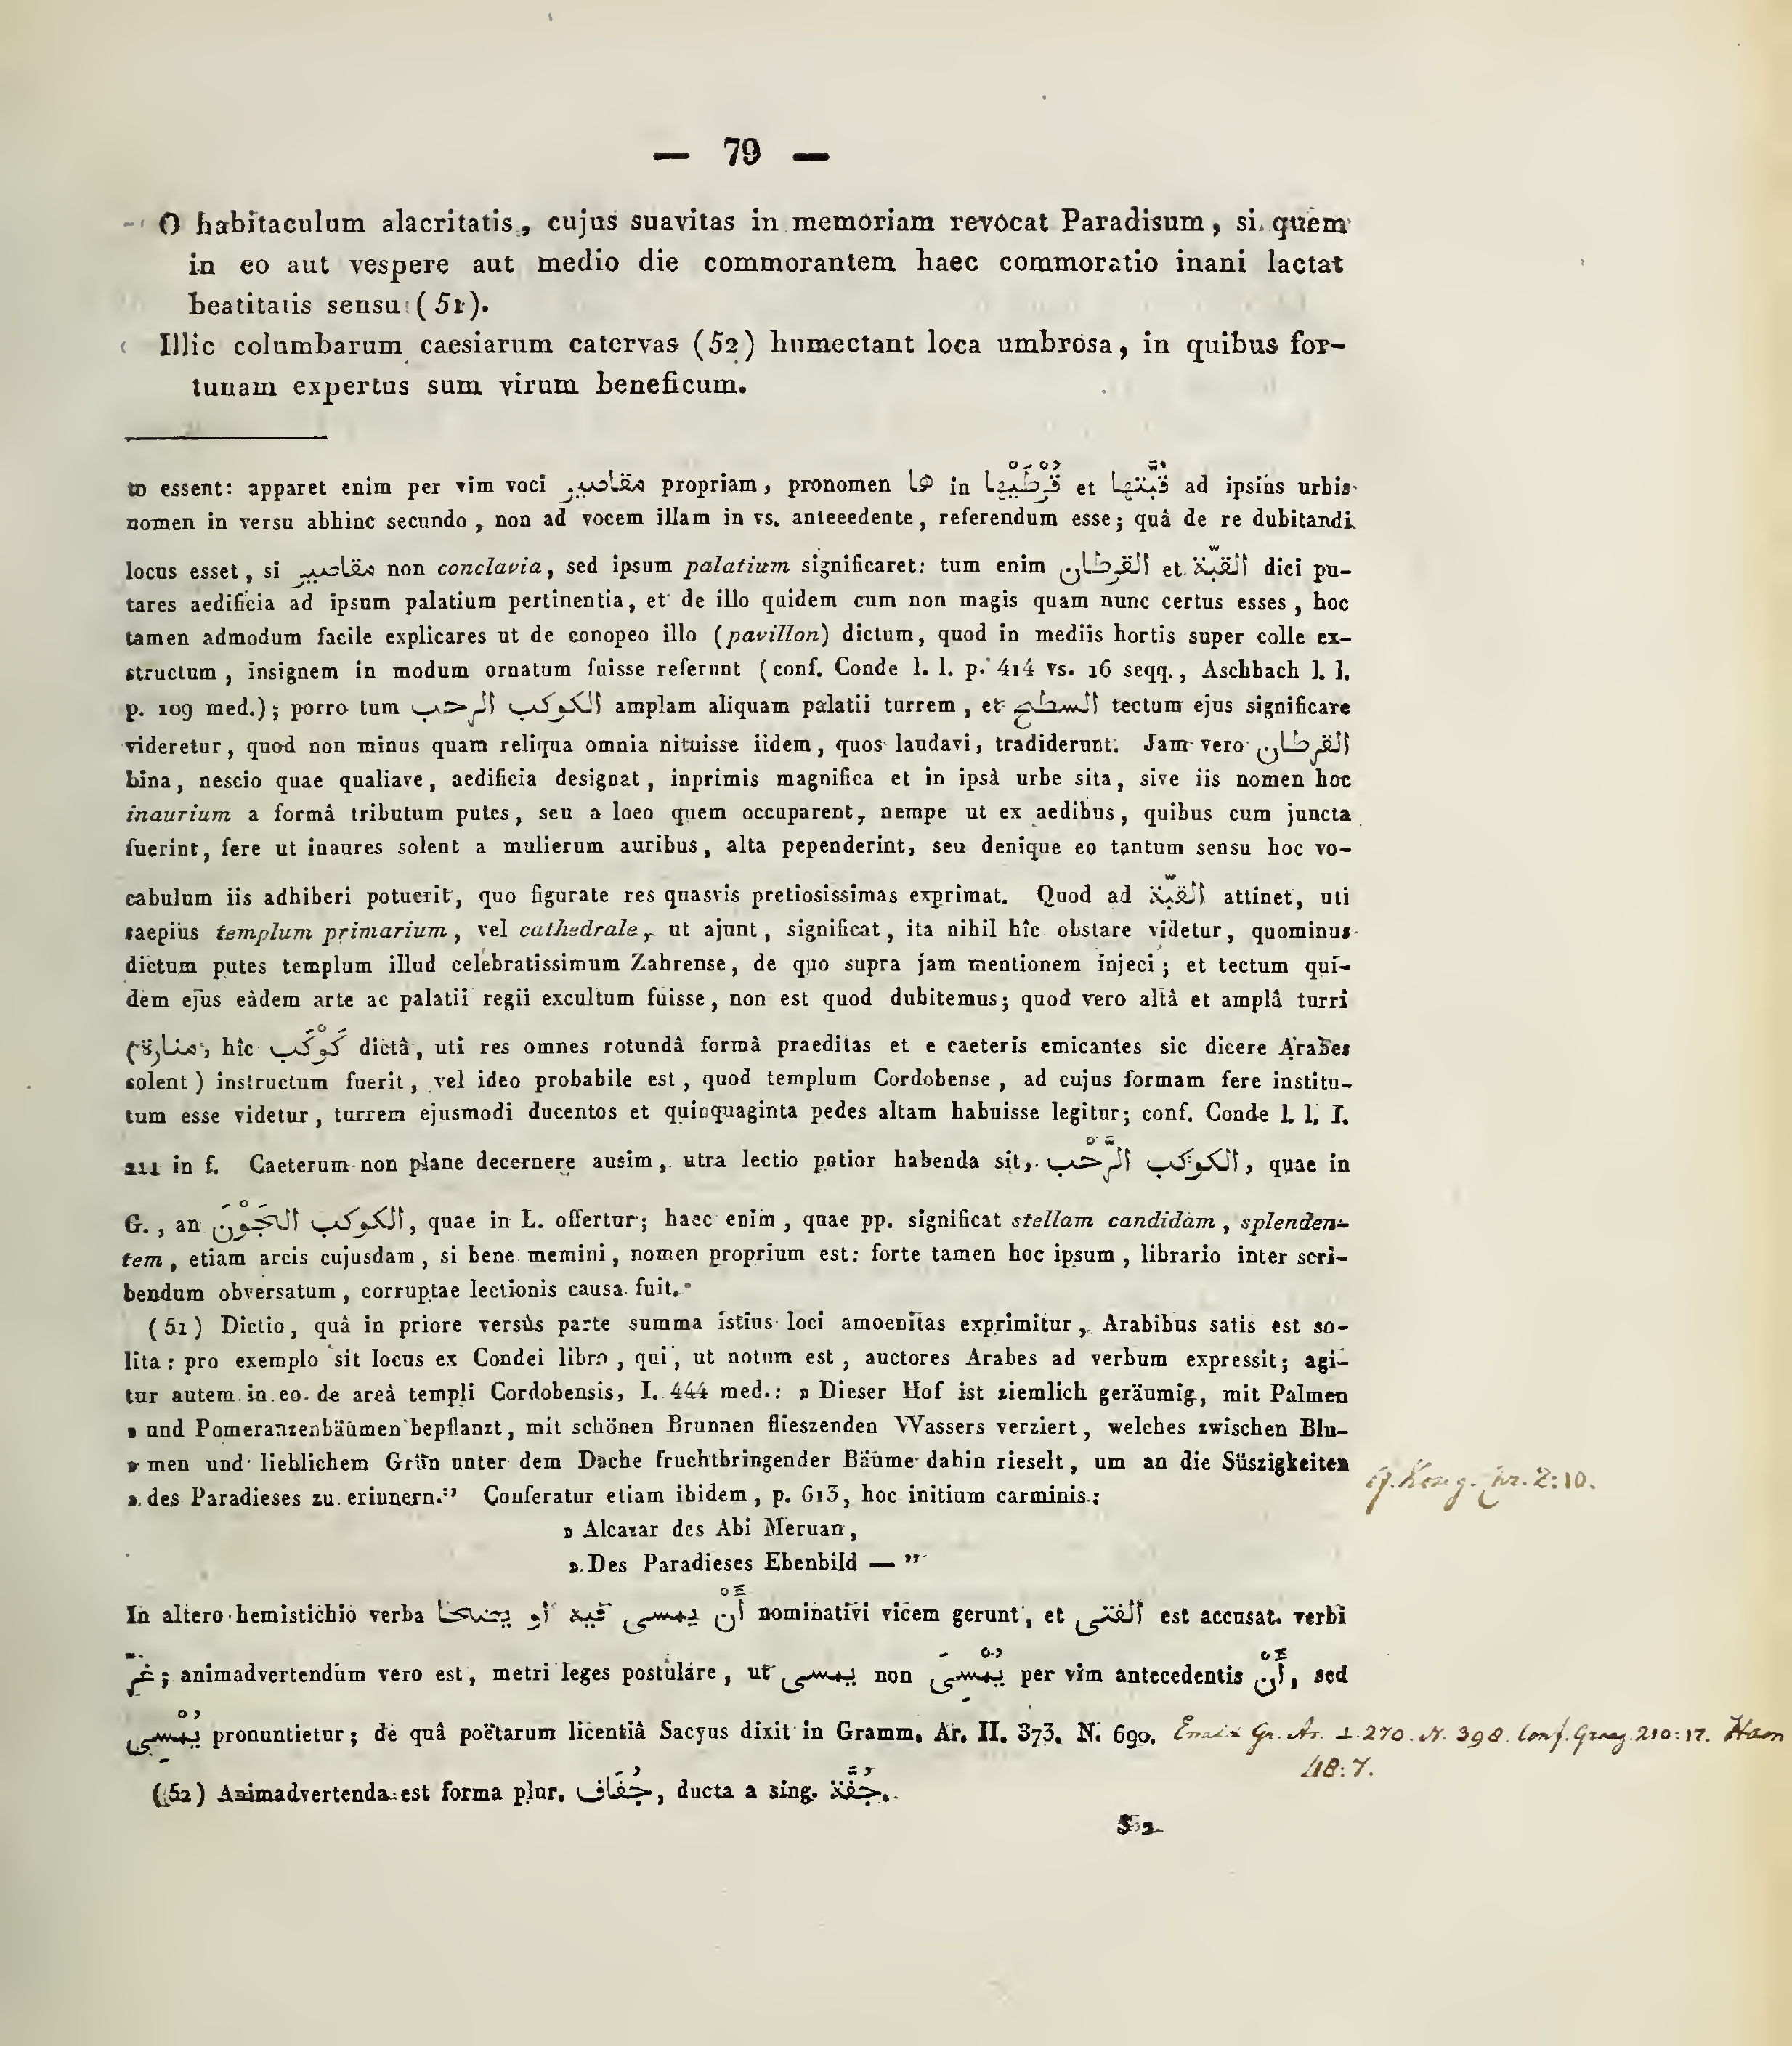 — 79 —
O habitaculum alacritatis, cujus suavitas in memoriam revocat Paradisum, si quem
in eo aut vespere aut medio die commorantem haec commoratio inani lactat
beatitatis sensu (51).
Illic columbarum caesiarum catervas (52) humectant loca umbrosa, in quibus for-
tunam expertus sum virum beneficum.
to essent: apparet enim per vim voci مقاصير propriam, pronomen ها in قُرْطَيْهَا et قُبَّتها ad ipsius urbis
nomen in versu abhinc secundo, non ad vocem illam in vs. anteeedente, referendum esse; quâ de re dubitandi
locus esset, si مقاصير non conclavia, sed ipsum palatium significaret: tum enim القرطان et القبّة dici pu-
tares aedificia ad ipsum palatium pertinentia, et de illo quidem cum non magis quam nunc certus esses, hoc
tamen admodum facile explicares ut de conopeo illo (pavillon) dictum, quod in mediis hortis super colle ex-
structum, insignem in modum ornatum fuisse referunt (conf. Conde l. l. p. 414 vs. 16 seqq., Aschbach l. l.
p. 109 med.); porro tum الكوكب الرحب amplam aliquam palatii turrem, et السطح tectum ejus significare
videretur, quod non minus quam reliqua omnia nituisse iidem, quos laudavi, tradiderunt. Jam vero القرطان
bina, nescio quae qualiave, aedificia designat, inprimis magnifica et in ipsâ urbe sita, sive iis nomen hoc
inaurium a formâ tributum putes, seu a loeo quem occuparent, nempe ut ex aedibus, quibus cum juncta
fuerint, fere ut inaures solent a mulierum auribus, alta pependerint, seu denique eo tantum sensu hoc vo-
cabulum iis adhiberi potuerit, quo figurate res quasvis pretiosissimas exprimat. Quod ad القبّة attinet, uti
saepius templum primarium, vel cathedrale, ut ajunt, significat, ita nihil hîc obstare videtur, quominus
dictum putes templum illud celebratissimum Zahrense, de quo supra jam mentionem injeci; et tectum qui-
dem ejus eâdem arte ac palatii regii excultum fuisse, non est quod dubitemus; quod vero altâ et amplâ turri
(منارة, hîc كَوْكَب dictâ, uti res omnes rotundâ formâ praeditas et e caeteris emicantes sic dicere Arabes
solent) instructum fuerit, vel ideo probabile est, quod templum Cordobense, ad cujus formam fere institu-
tum esse videtur, turrem ejusmodi ducentos et quinquaginta pedes altam habuisse legitur; conf. Conde l. l. I.
211 in f. Caeterum non plane decernere ausim, utra lectio potior habenda sit, الكوكب الرَّحْب, quae in
G., an الكوكب الجَوْنَ, quae in L. offertur; haec enim, quae pp. significat stellam candidam, splenden-
tem, etiam arcis cujusdam, si bene memini, nomen proprium est: forte tamen hoc ipsum, librario inter scri-
bendum obversatum, corruptae lectionis causa fuit.
(51) Dictio, quâ in priore versûs parte summa istius loci amoenitas exprimitur, Arabibus satis est so-
lita: pro exemplo sit locus ex Condei libro, qui, ut notum est, auctores Arabes ad verbum expressit; agi-
tur autem in eo de areâ templi Cordobensis, I. 444 med.: » Dieser Hof ist ziemlich geräumig, mit Palmen
» und Pomeranzenbäümen bepflanzt, mit schönen Brunnen flieszenden Wassers verziert, welches zwischen Blu-
» men und lieblichem Grün unter dem Dache fruchtbringender Bäüme dahin rieselt, um an die Süszigkeiten
» des Paradieses zu eriunern.” Conferatur etiam ibidem, p. 613, hoc initium carminis:
» Alcazar des Abi Meruan,
» Des Paradieses Ebenbild — ”
In altero hemistichio verba أَنْ يمسى فيه أو يضحا nominativi vicem gerunt, et الفتى est accusat. verbi
غرّ; animadvertendum vero est, metri leges postulare, ut يمسى non يُمْسِىَ per vim antecedentis أَنْ, sed
يُمْسِى pronuntietur; de quâ poëtarum licentiâ Sacyus dixit in Gramm. Ar. II. 373. N. 690. Gr. Ar. 1. 270. N. 398. Conf. 210:17. Ham
48:7.
(52) Animadvertenda est forma plur. جُفَاف, ducta a sing. جُفَّة.
S 2